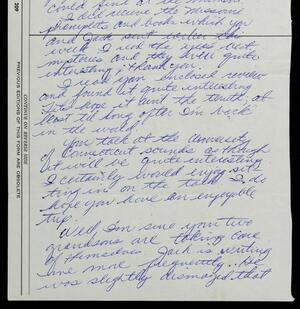 could find at the moment.
I did receive the Missouri
pamphlets and books which you
and Jack sent earlier this
week. I read the Yates best
mysteries and they were quite
interesting; thank you.
I read your enclosed review
and found it quite interesting
Lets hope it aint the truth, at
least til long after I'm back
in the world.
You talk at the University
of Connecticut sounds as though
it will be quite interesting
I certainly would enjoy sit
ting in on the talk. I do
hope you have an enjoyable
trip.
Well I'm sure your two
grandsons are taking care
of themselves. Jack is writing
me more frequently. He
was slightly dismayed that
209
CONTINUE ON REVERSE SIDE
PREVIOUS EDITIONS OF THIS FORM ARE OBSOLETE